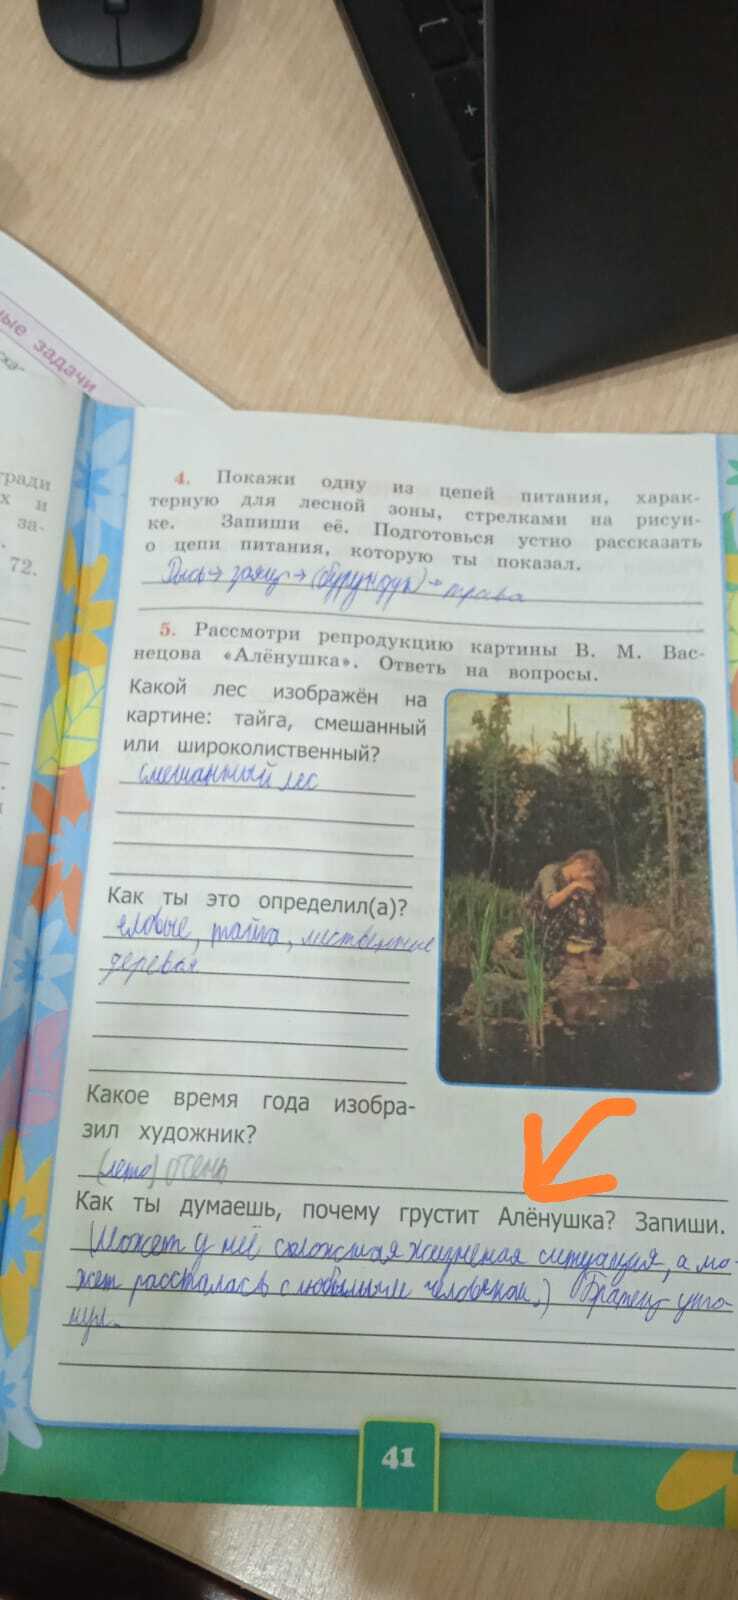 ные задачи
тради
х и
за-
72.
4. Покажи одну из цепей питания, харак-
терную для лесной зоны, стрелками на рисун-
ке. Запиши её. Подготовься устно рассказать
о цепи питания, которую ты показал.
Рысь → заяц → (бурундук) → трава
5. Рассмотри репродукцию картины В. М. Вас-
нецова «Алёнушка». Ответь на вопросы.
Какой лес изображён на
картине: тайга, смешанный
или широколиственный?
смешанный лес
Как ты это определил(а)?
еловые, тайга, лиственные
деревья
Какое время года изобра-
зил художник?
(лето) осень
Как ты думаешь, почему грустит Алёнушка? Запиши.
(Может у неё сложная жизненая ситуация, а мо-
жет рассталась с любимым человеком.) Братец уто-
нул.
41